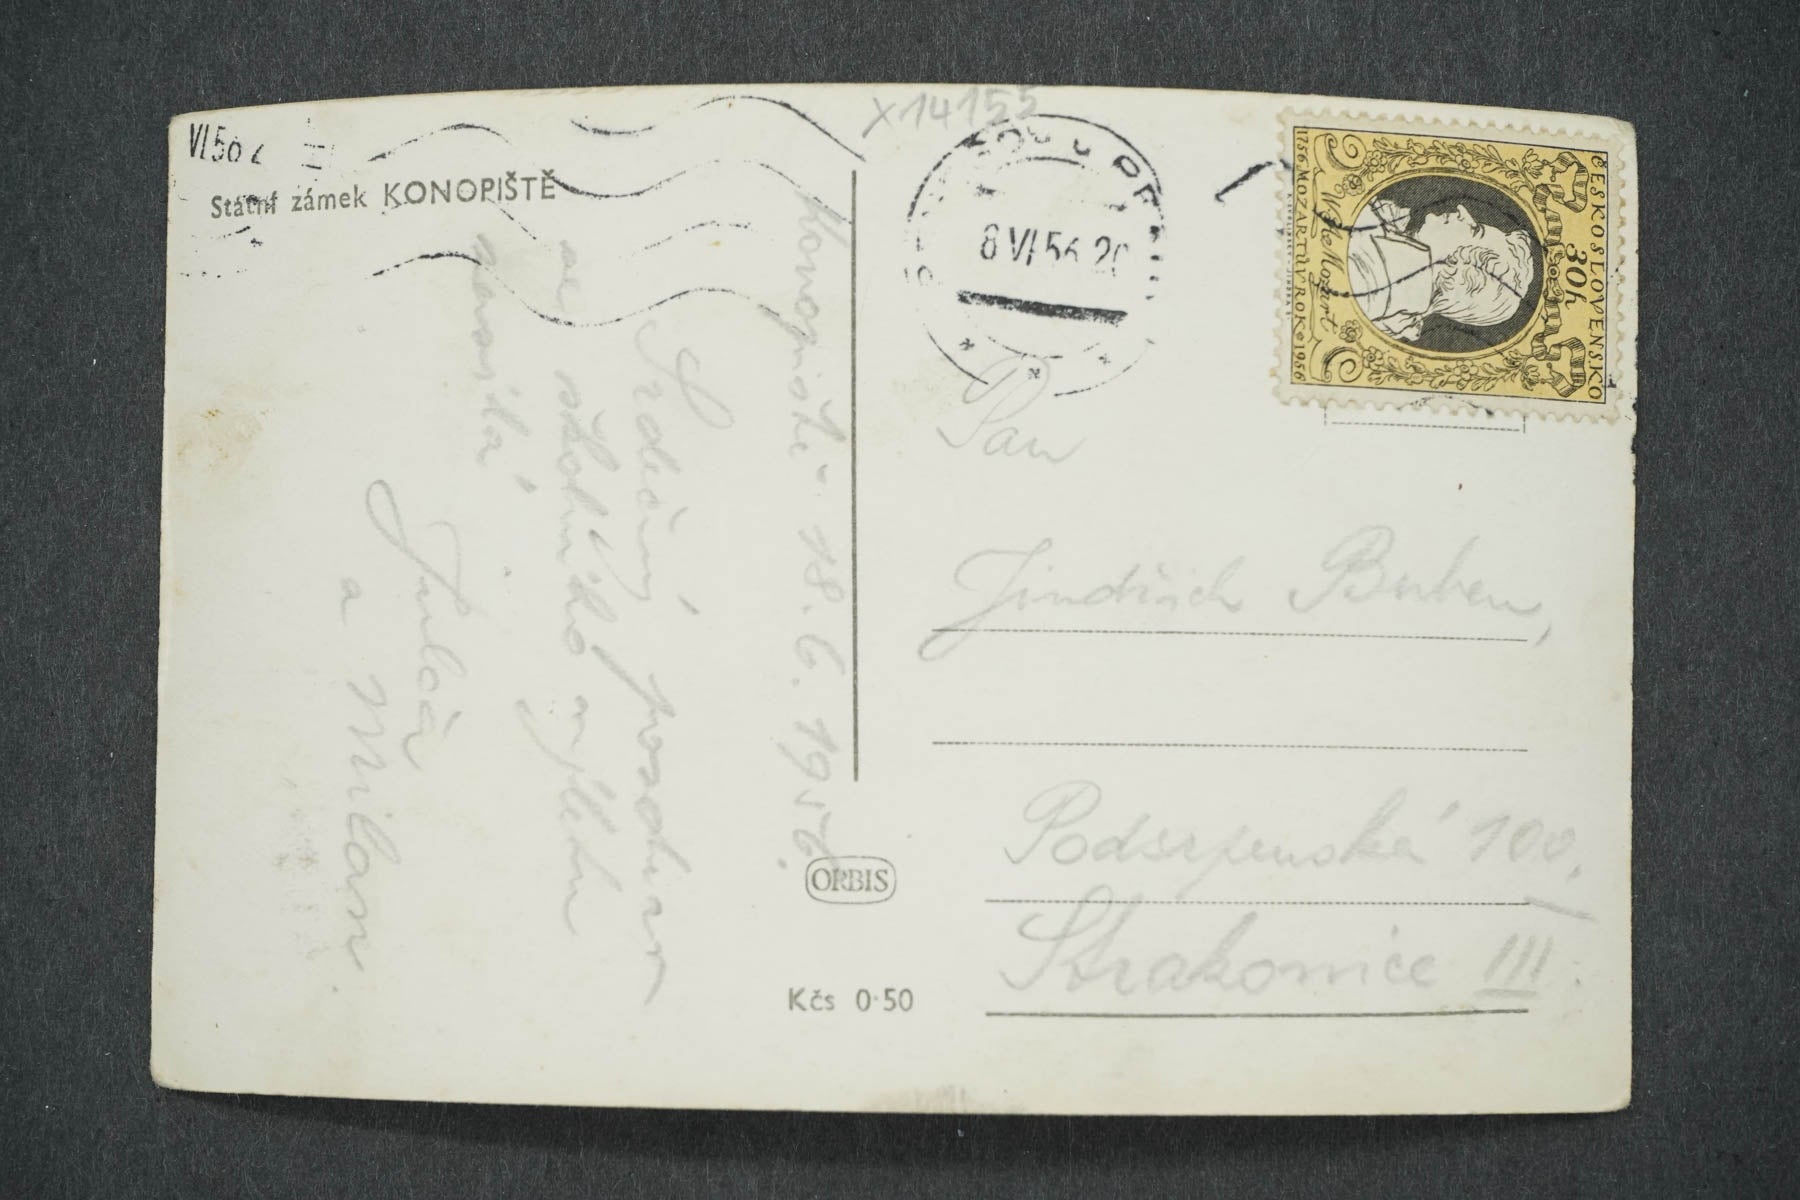 x14155
VI 56 2
Státní zámek KONOPIŠTĚ
8 VI 56 20
ČESKOSLOVENSKO
30h
W A Mozart
1756 MOZARTŮV ROK 1956
Konopiště 18. 6. 1956.
Srdečný pozdrav
ze školního výletu
zasílá
a Milan.
Pan
Jindřich Buben,
Podsrpenská 100.
Strakonice III.
ORBIS
Kčs 0·50